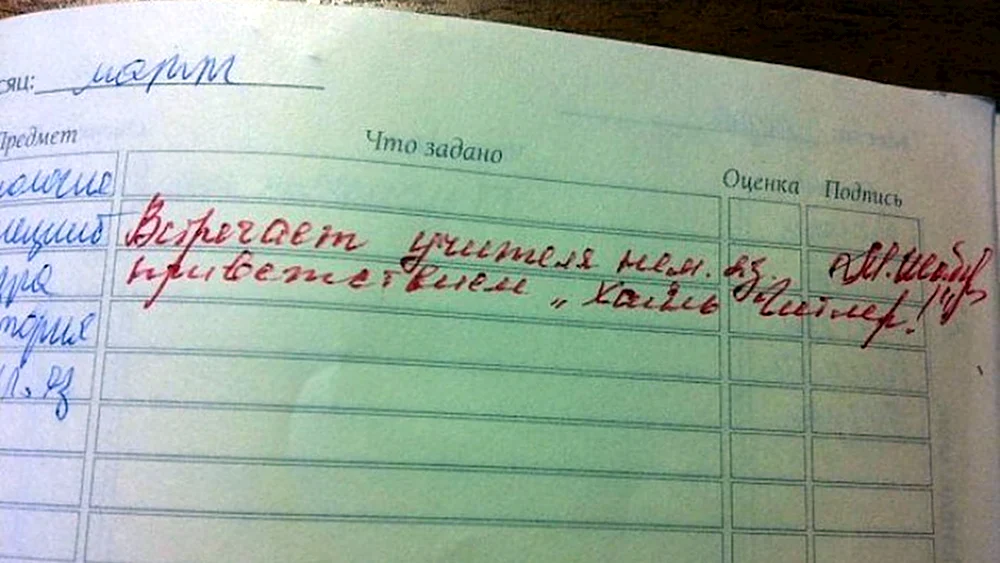 сяц: март
Предмет Что задано Оценка Подпись
ология
Встречает учителя нем. яз.
приветствием „Хайль Гитлер!"
тория
л. яз